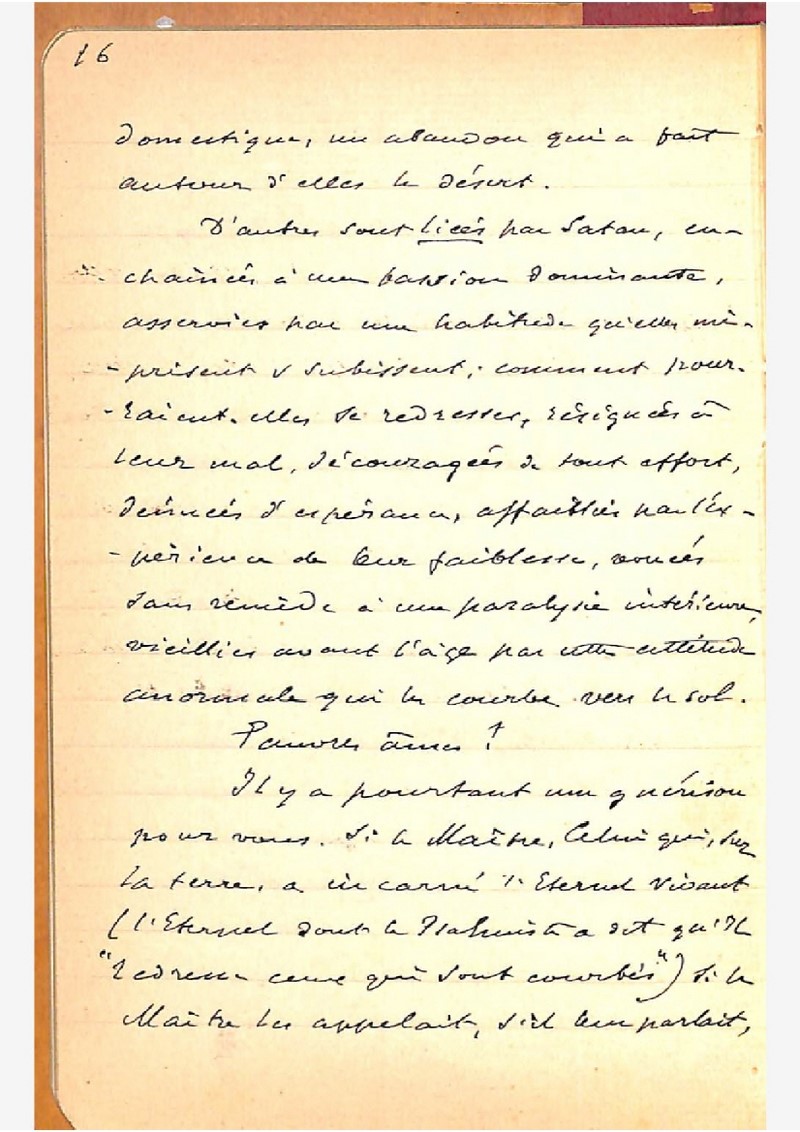 16
domestique, un abandon qui a fait
autour d'elles le désert.
D'autres sont liées par Satan, en-
chaînées à une passion dominante,
asservies par une habitude qu'elles mé-
-prisent & subissent; comment pour-
-raient-elles se redresser, résignées à
leur mal, découragées de tout effort,
dénuées d'espérance, affaiblies par l'ex-
-périence de leur faiblesse, vouées
sans remède à une paralysie intérieure,
vieillies avant l'âge par cette attitude
anormale qui les courbe vers le sol.
Pauvres âmes!
Il y a pourtant une guérison
pour vous. Si le Maître, Celui qui, sur
la terre, a incarné l'Eternel vivant
(l'Eternel dont le Psalmiste a dit qu'Il
"redresse ceux qui sont courbés") si le
Maître les appelait, s'il leur parlait,